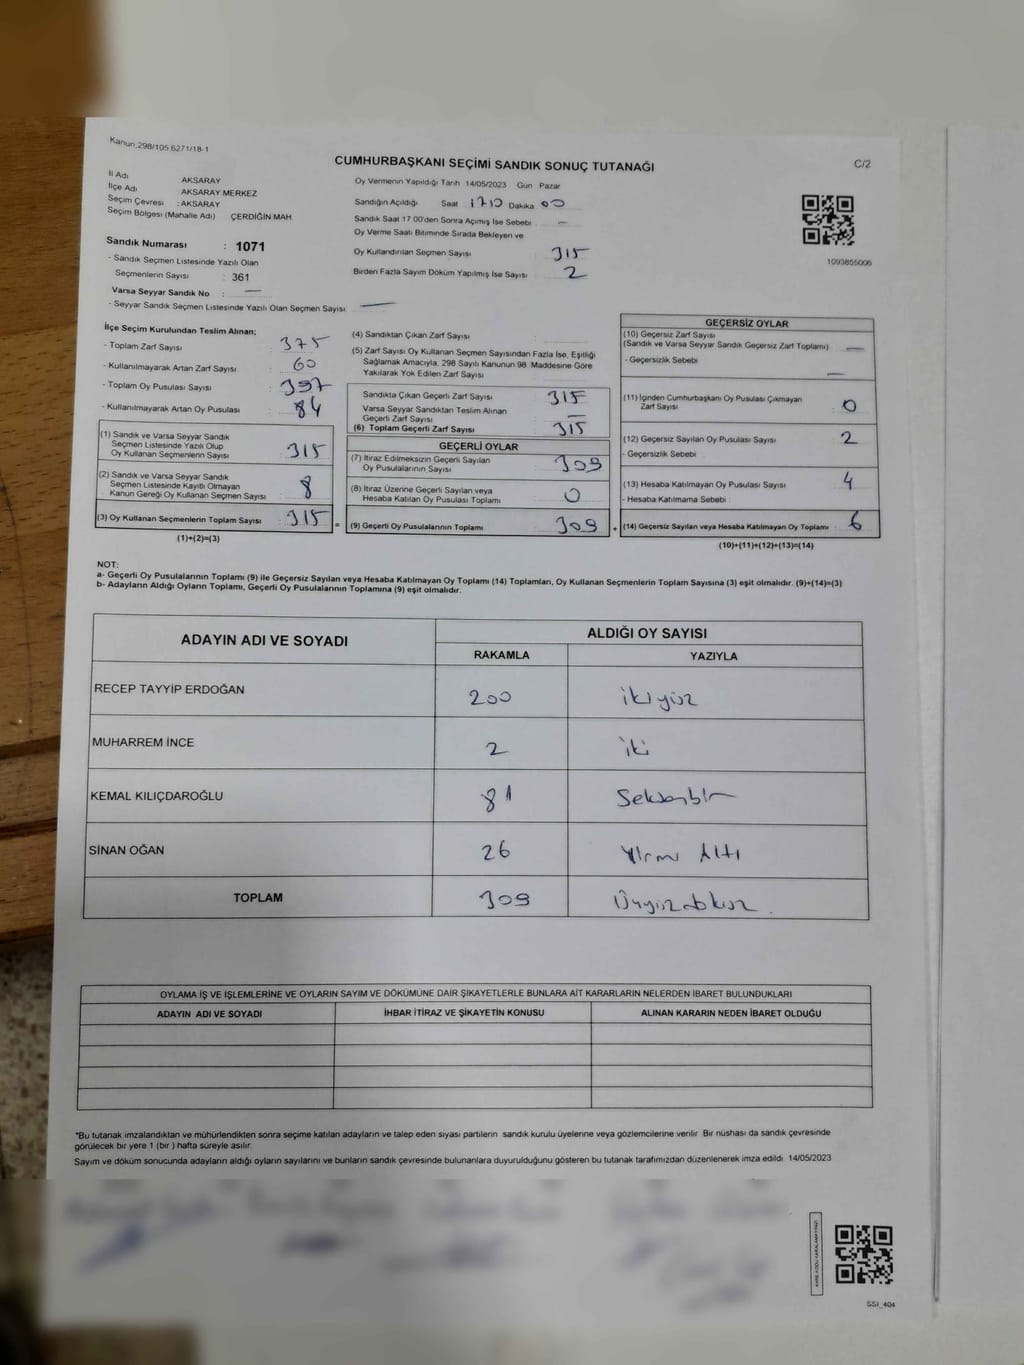 Kanun:298/105 6271/18-1
CUMHURBAŞKANI SEÇİMİ SANDIK SONUÇ TUTANAĞI
C/2
İl Adı AKSARAY
İlçe Adı AKSARAY MERKEZ
Seçim Çevresi : AKSARAY
Seçim Bölgesi (Mahalle Adı) : ÇERDİĞİN MAH.
Sandık Numarası : 1071
- Sandık Seçmen Listesinde Yazılı Olan
Seçmenlerin Sayısı : 361
Varsa Seyyar Sandık No : —
- Seyyar Sandık Seçmen Listesinde Yazılı Olan Seçmen Sayısı: —
Oy Vermenin Yapıldığı Tarih 14/05/2023 Gün Pazar
Sandığın Açıldığı Saat : 1710 Dakika 00
Sandık Saat 17.00'den Sonra Açılmış İse Sebebi : —
Oy Verme Saati Bitiminde Sırada Bekleyen ve
Oy Kullandırılan Seçmen Sayısı 315
Birden Fazla Sayım Döküm Yapılmış İse Sayısı : 2
1093855006
İlçe Seçim Kurulundan Teslim Alınan;
- Toplam Zarf Sayısı : 375
- Kullanılmayarak Artan Zarf Sayısı : 60
- Toplam Oy Pusulası Sayısı : 397
- Kullanılmayarak Artan Oy Pusulası : 84
(1) Sandık ve Varsa Seyyar Sandık
Seçmen Listesinde Yazılı Olup
Oy Kullanan Seçmenlerin Sayısı : 315
(2) Sandık ve Varsa Seyyar Sandık
Seçmen Listesinde Kayıtlı Olmayan
Kanun Gereği Oy Kullanan Seçmen Sayısı :
(3) Oy Kullanan Seçmenlerin Toplam Sayısı : 315
(1)+(2)=(3)
(4) Sandıktan Çıkan Zarf Sayısı
(5) Zarf Sayısı Oy Kullanan Seçmen Sayısından Fazla İse, Eşitliği
Sağlamak Amacıyla, 298 Sayılı Kanunun 98. Maddesine Göre
Yakılarak Yok Edilen Zarf Sayısı
Sandıkta Çıkan Geçerli Zarf Sayısı : 315
Varsa Seyyar Sandıktan Teslim Alınan
Geçerli Zarf Sayısı : —
(6) Toplam Geçerli Zarf Sayısı : 315
GEÇERLİ OYLAR
(7) İtiraz Edilmeksizin Geçerli Sayılan
Oy Pusulalarının Sayısı : 309
(8) İtiraz Üzerine Geçerli Sayılan veya
Hesaba Katılan Oy Pusulası Toplamı : 0
= (9) Geçerli Oy Pusulalarının Toplamı : 309 +
GEÇERSİZ OYLAR
(10) Geçersiz Zarf Sayısı
(Sandık ve Varsa Seyyar Sandık Geçersiz Zarf Toplamı) : —
- Geçersizlik Sebebi : —
(11) İçinden Cumhurbaşkanı Oy Pusulası Çıkmayan
Zarf Sayısı : 0
(12) Geçersiz Sayılan Oy Pusulası Sayısı : 2
- Geçersizlik Sebebi
(13) Hesaba Katılmayan Oy Pusulası Sayısı : 4
- Hesaba Katılmama Sebebi
(14) Geçersiz Sayılan veya Hesaba Katılmayan Oy Toplamı : 6
(10)+(11)+(12)+(13)=(14)
NOT:
a- Geçerli Oy Pusulalarının Toplamı (9) ile Geçersiz Sayılan veya Hesaba Katılmayan Oy Toplamı (14) Toplamları, Oy Kullanan Seçmenlerin Toplam Sayısına (3) eşit olmalıdır. (9)+(14)=(3)
b- Adayların Aldığı Oyların Toplamı, Geçerli Oy Pusulalarının Toplamına (9) eşit olmalıdır.
ADAYIN ADI VE SOYADI
ALDIĞI OY SAYISI
RAKAMLA YAZIYLA
RECEP TAYYİP ERDOĞAN 200 ikiyüz
MUHARREM İNCE 2 iki
KEMAL KILIÇDAROĞLU 81 Seksenbir
SİNAN OĞAN 26 Yirmi Altı
TOPLAM 309 Üçyüzdokuz.
OYLAMA İŞ VE İŞLEMLERİNE VE OYLARIN SAYIM VE DÖKÜMÜNE DAİR ŞİKAYETLERLE BUNLARA AİT KARARLARIN NELERDEN İBARET BULUNDUKLARI
ADAYIN ADI VE SOYADI İHBAR İTİRAZ VE ŞİKAYETİN KONUSU ALINAN KARARIN NEDEN İBARET OLDUĞU
*Bu tutanak imzalandıktan ve mühürlendikten sonra seçime katılan adayların ve talep eden siyasi partilerin sandık kurulu üyelerine veya gözlemcilerine verilir. Bir nüshası da sandık çevresinde
görülecek bir yere 1 (bir) hafta süreyle asılır.
Sayım ve döküm sonucunda adayların aldığı oyların sayılarını ve bunların sandık çevresinde bulunanlara duyurulduğunu gösteren bu tutanak tarafımızdan düzenlenerek imza edildi. 14/05/2023
KARE KODU KARALAMAYINIZ!
SSI_404